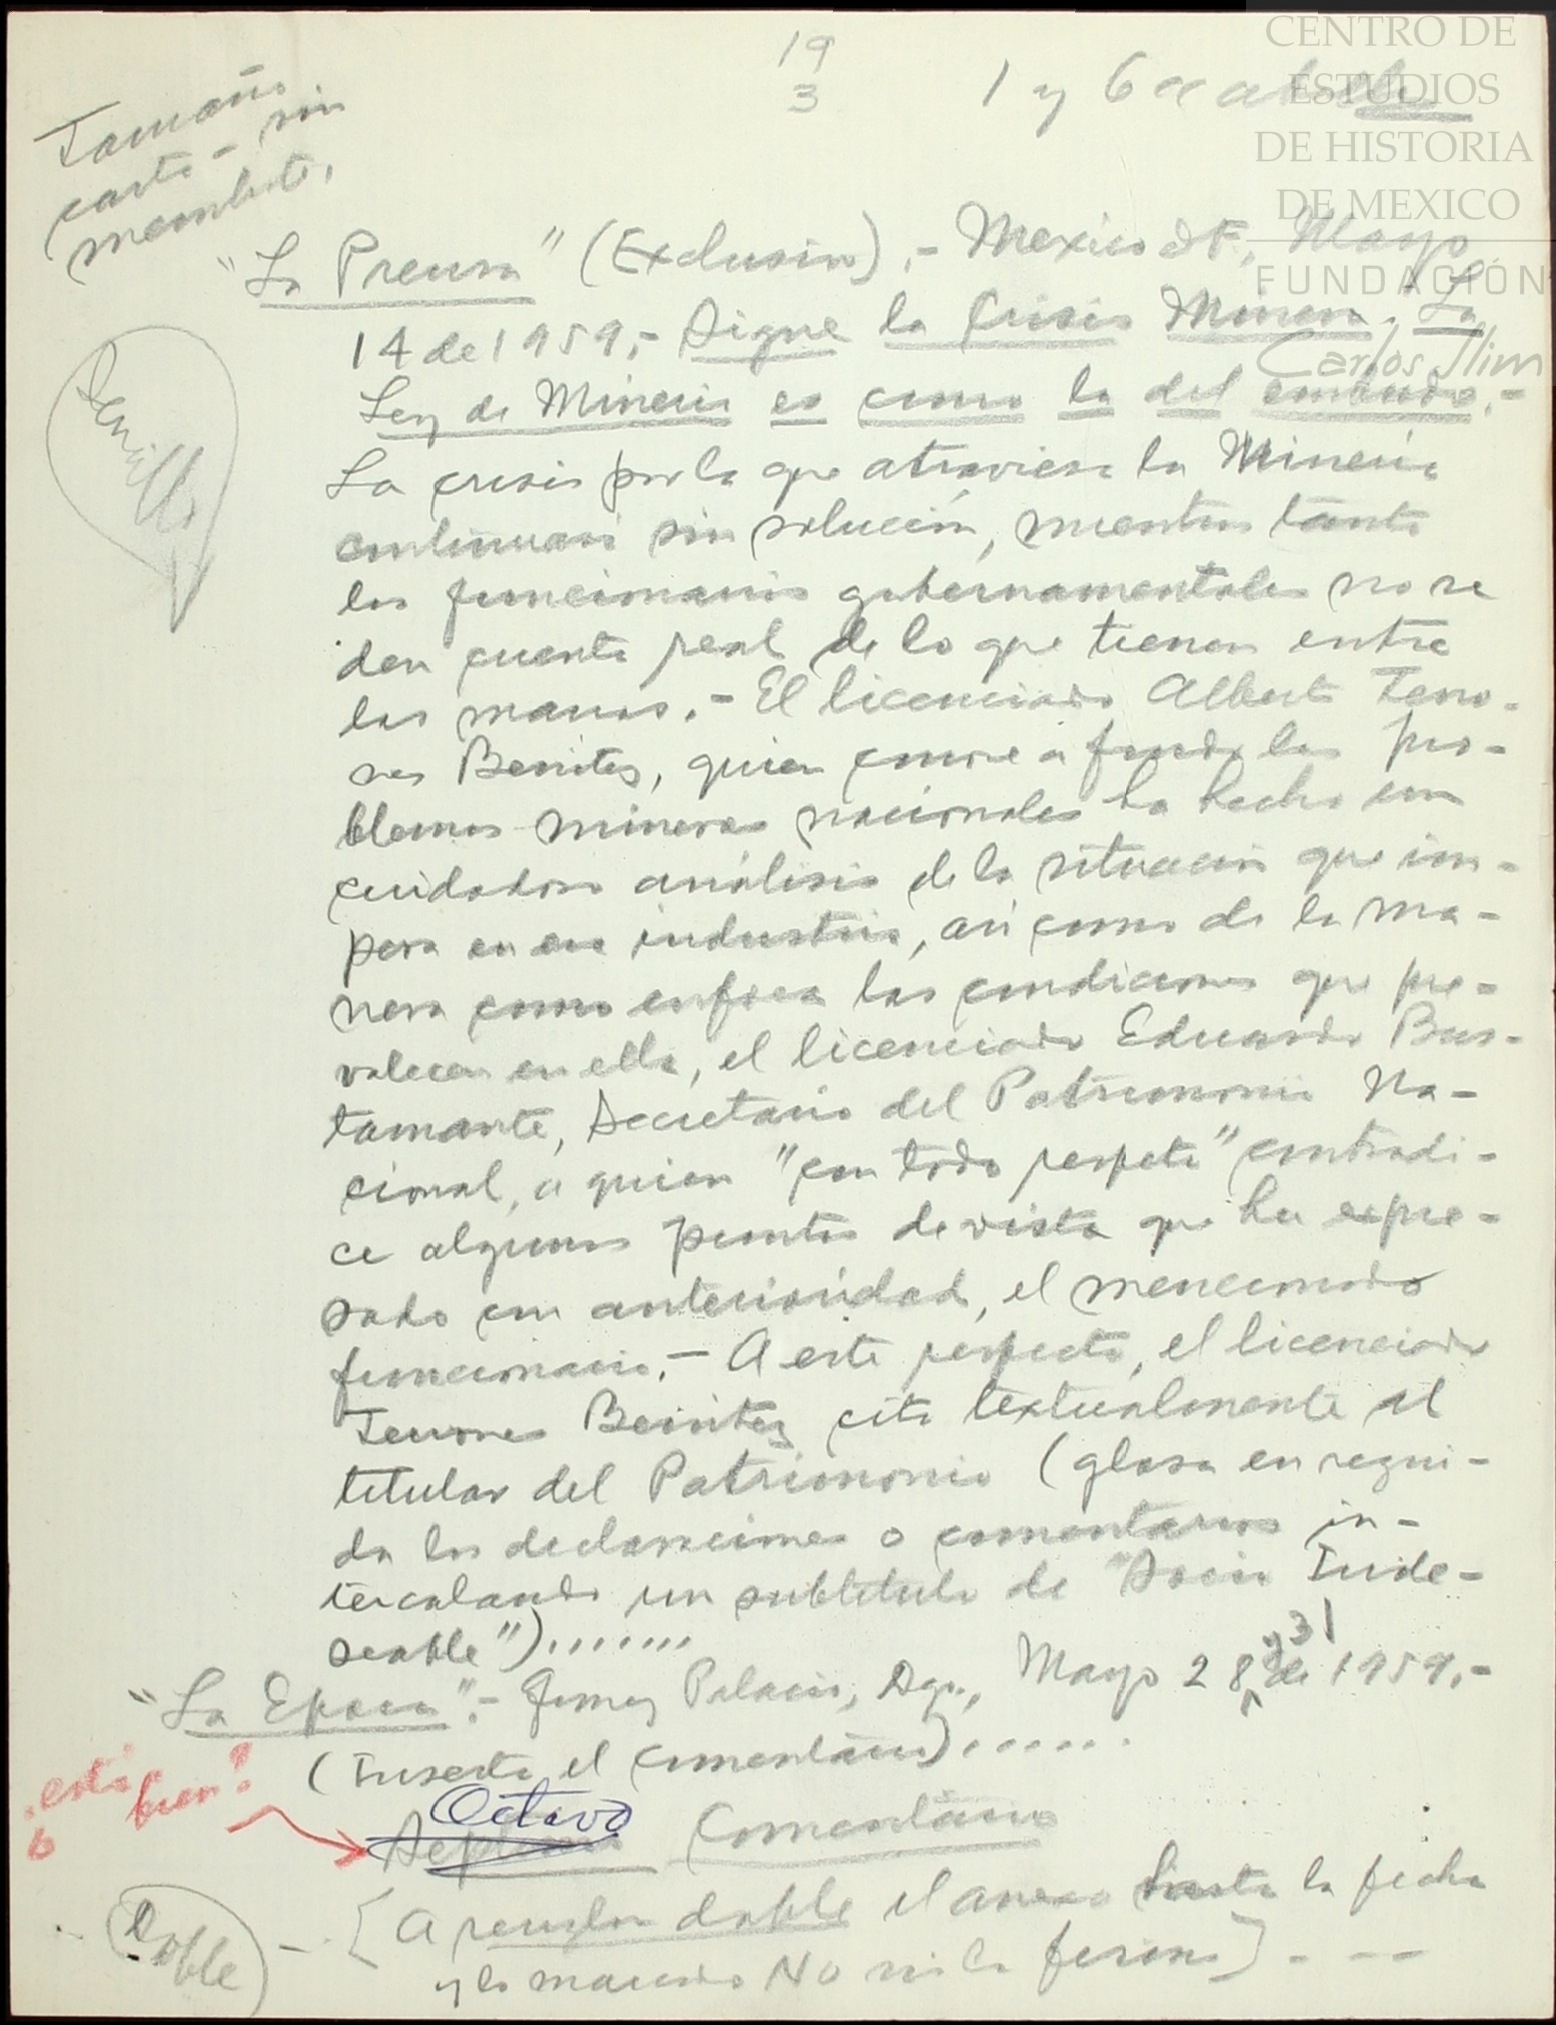 19
3
1 y 6
CENTRO DE
ESTUDIOS
DE HISTORIA
DE MEXICO
FUNDACIÓN
Carlos Slim
Tamaño
carta - sin
membrete.
"La Prensa" (Exclusivo).- Mexico DF, Mayo
14 de 1959.- Sigue la Crisis Minera. "La
Ley de Mineria es como la del embudo.-
Sencillo
La crisis por la que atraviesa la Minería
continuará sin solución, mientras tanto
los funcionarios gubernamentales no se
den cuenta real de lo que tienen entre
las manos.- El licenciado Alberto Terro-
nes Benitez, quien conoce a fondo los pro-
blemas mineros nacionales ha hecho un
cuidadoso análisis de la situación que im-
pera en esa industria, asi como de la ma-
nera como enfoca las condiciones que pre-
valecen en ella, el licenciado Eduardo Bus-
tamante, Secretario del Patrimonio Na-
cional, a quien "con todo respeto" contradi-
ce algunos puntos de vista que ha expre-
sado con anterioridad, el mencionado
funcionario.- A este respecto, el licenciado
Terrones Benitez cita textualmente al
titular del Patrimonio (glosa en segui-
da las declaraciones o comentarios in-
tercalando un subtitulo de "Socio Inde-
seable").......
"La Epoca".- Gomez Palacio, Dgo., Mayo 28 y 31 de 1959.-
(Inserta el comentario)......
¿está bien?
Octavo
Septimo Comentario
Doble
[A renglon doble el anexo hasta la fecha
y lo marcado No sin la firma] - - -